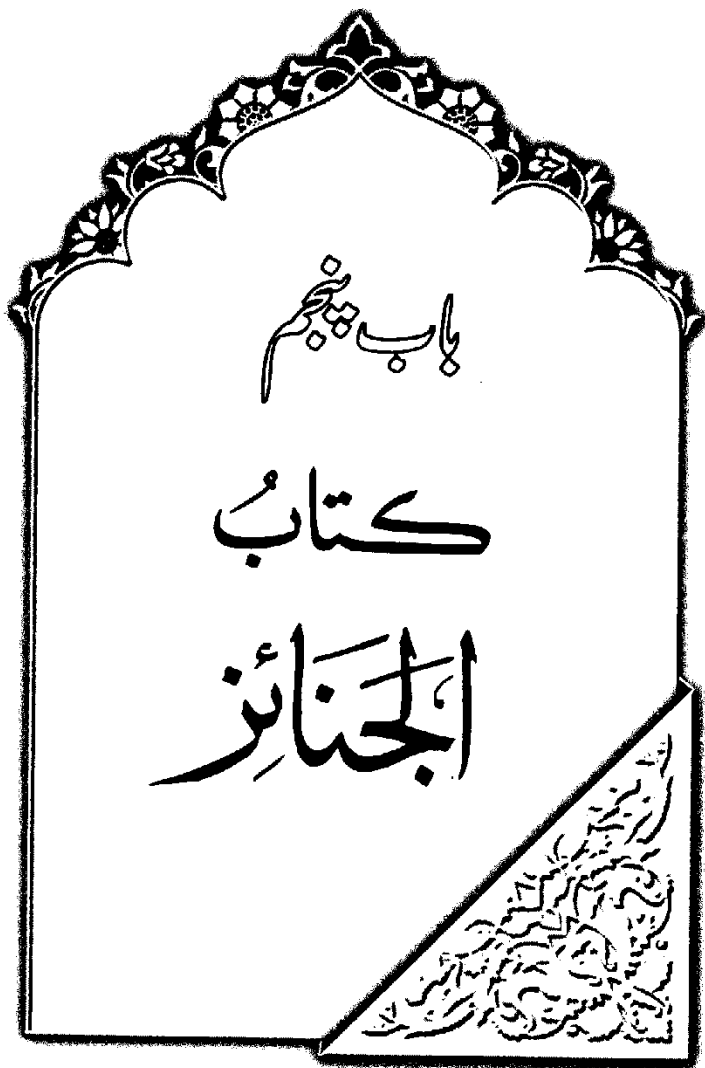 باب پنجم
کتابُ
الجَنَائِز